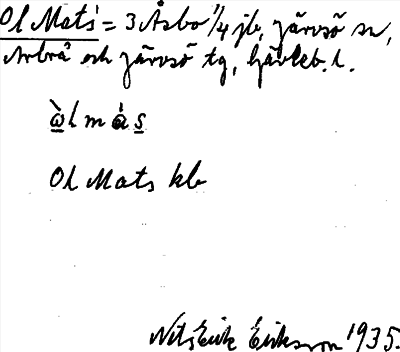 Ol Mats = 3 Åsbo 1/4 jb, Järvsö sn,
Arbrå och Järvsö tg, Gävleb. l.
ὼlmás
Ol Mats kb
Nils Erik Eriksson 1935.